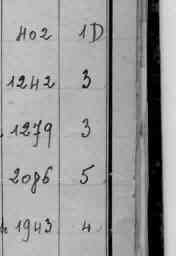 402 1D
1242 3
1279 3
2086 5
1943 4